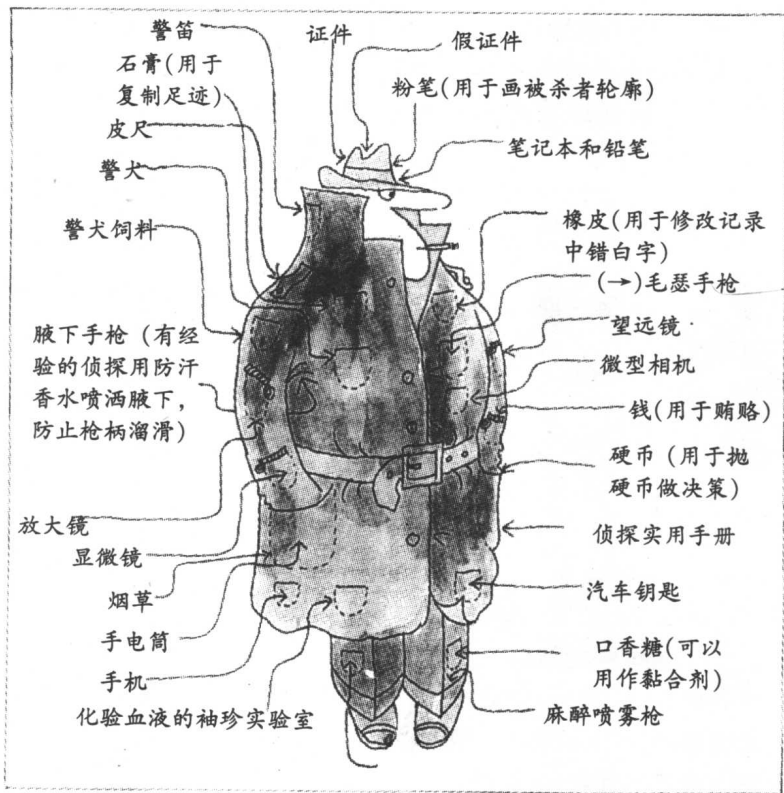 警笛
石膏(用于
复制足迹)
皮尺
警犬
警犬饲料
腋下手枪 (有经
验的侦探用防汗
香水喷洒腋下,
防止枪柄溜滑)
放大镜
显微镜
烟草
手电筒
手机
化验血液的袖珍实验室
证件
假证件
粉笔(用于画被杀者轮廓)
笔记本和铅笔
橡皮(用于修改记录
中错白字)
(→)毛瑟手枪
望远镜
微型相机
钱(用于贿赂)
硬币 (用于抛
硬币做决策)
侦探实用手册
汽车钥匙
口香糖(可以
用作黏合剂)
麻醉喷雾枪